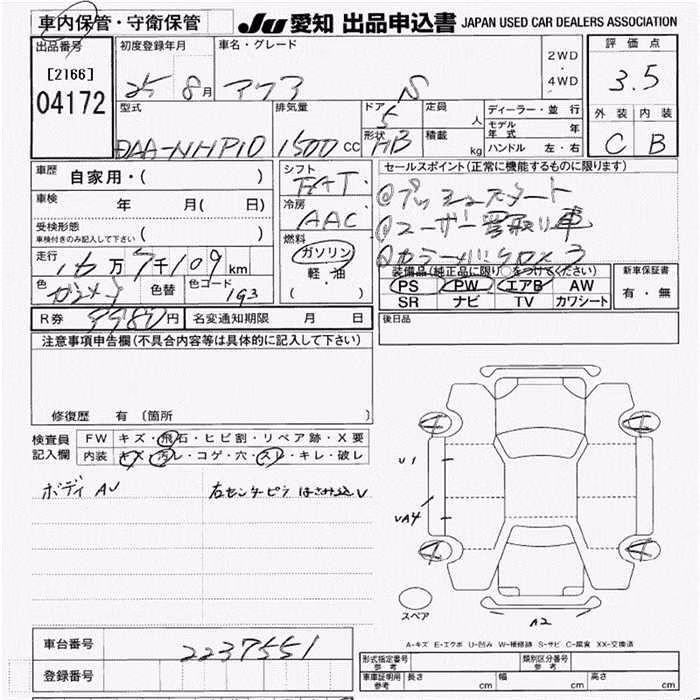 車内保管・守衛保管 JU 愛知 出品申込書 JAPAN USED CAR DEALERS ASSOCIATION
出品番号 初度登録年月 車名・グレード 2WD・4WD 評価点
[2166] 25 8月 アクア S 3.5
04172 型式 排気量 ドア 5 定員 人 ディーラー・並行 外装 内装
モデル年式 年
DAA-NHP10 1500cc 形状 HB 積載 kg ハンドル 左・右 C B
車歴 自家用・( ) シフト FAT セールスポイント(正常に機能するものに限ります)
車検 年 月( 日) 冷房 AAC ①プッシュスタート
受検形態 車検付きのみ記入して下さい ( ) 燃料 ②ユーザー買取り車
走行 16万7千109km ガソリン
軽・油
( )
装備品(純正品に限り○をつけてください) 新車保証書
色 色替 色コード 1G3 PS PW エアB AW 有・無
SR ナビ TV カワシート
R券 9980円 名変通知期限 月 日 後日品
注意事項申告欄(不具合内容等は具体的に記入して下さい)
修復歴 有 〔箇所 〕
検査員記入欄 FW キズ・飛石・ヒビ割・リペア跡・X要
内装 キズ・汚レ・コゲ・穴・スレ・キレ・破レ
ボディ AU 右センターピラ はさみ込 U
U1
UA4
スペア
A2
A-キズ E-エクボ U-凹み W-補修跡 S-サビ C-腐食 XX-交換済
車台番号 2237551
登録番号
形式指定番号 参考 類別区分番号 参考
車庫証明用 参考 長さ cm 幅 cm 高さ cm